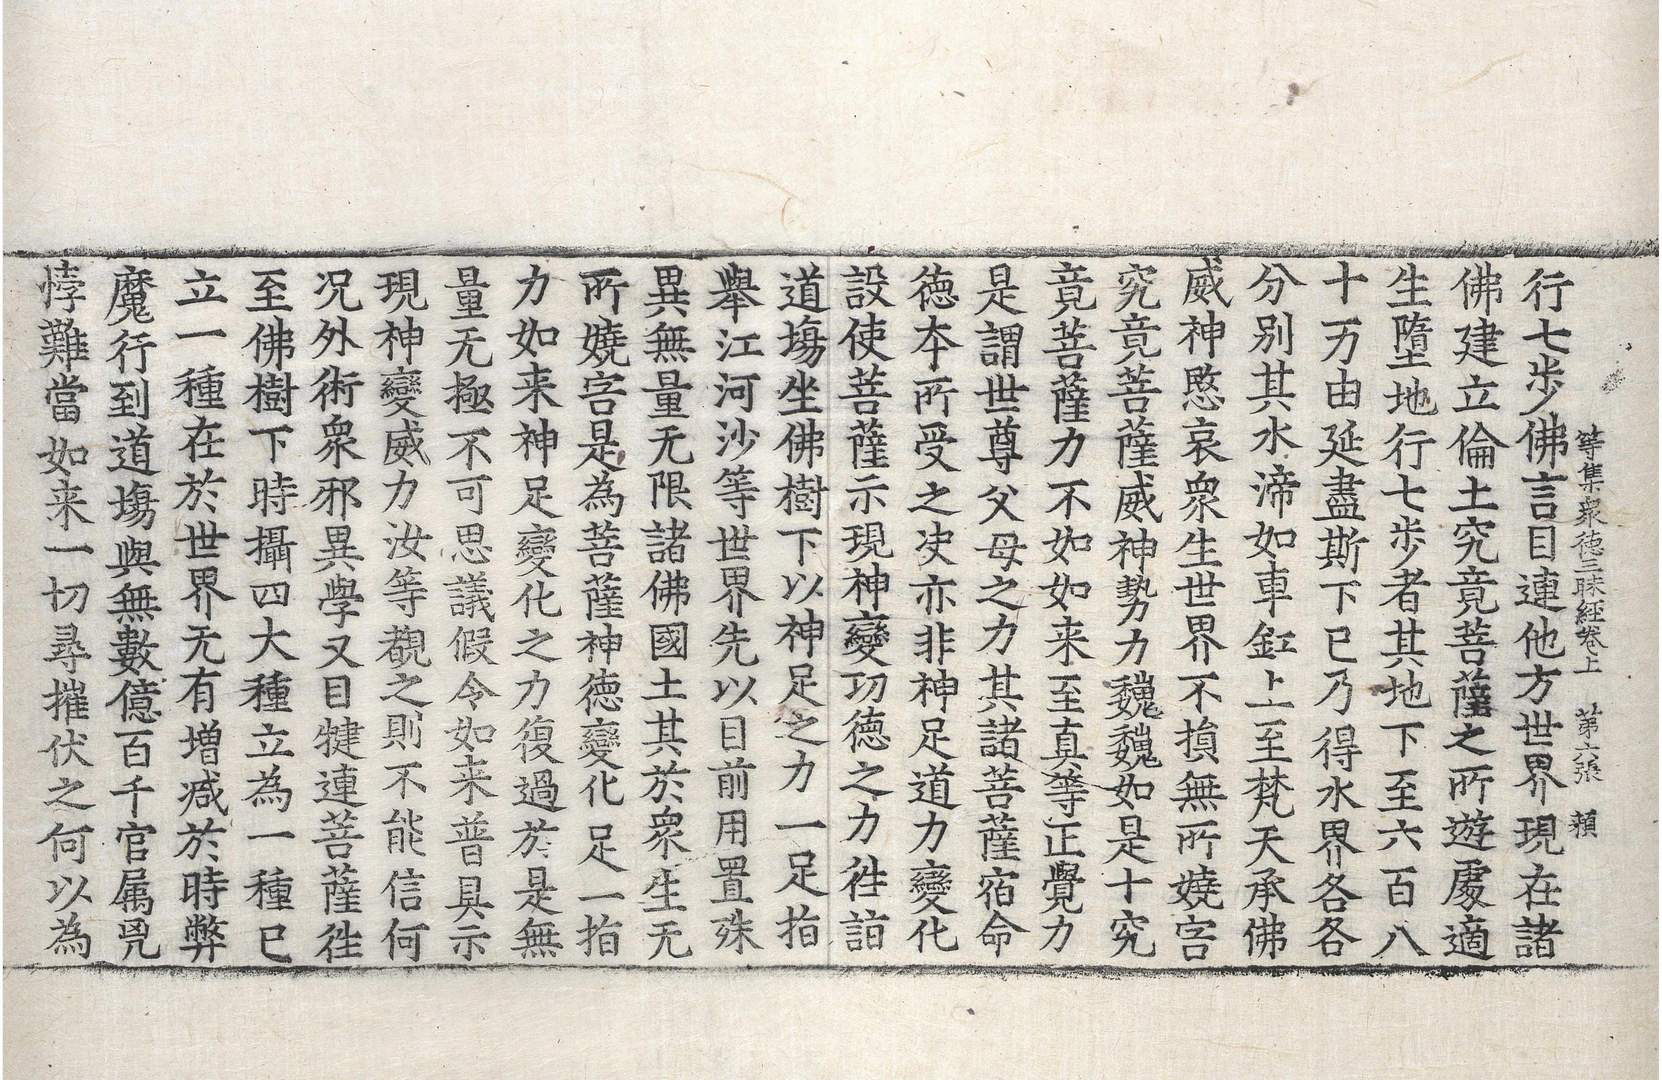 等集衆德三昧經卷上　第六張　頛
行七步佛言目連他方世界現在諸
佛建立倫土究竟菩薩之所遊處適
生墮地行七步者其地下至六百八
十万由延盡斯下已乃得水界各各
分别其水渧如車釭上至梵天承佛
威神愍哀衆生世界不損無所嬈害
究竟菩薩威神勢力巍巍如是十究
竟菩薩力不如如来至真等正覺力
是謂世尊父母之力其諸菩薩宿命
德本所受之决亦非神足道力變化
設使菩薩示現神變功德之力往詣
道塲坐佛樹下以神足之力一足指
舉江河沙等世界先以目前用置殊
異無量无限諸佛國土其於衆生无
所嬈害是為菩薩神德變化足一指
力如来神足變化之力復過於是無
量无極不可思議假令如来普具示
現神變威力汝等覩之則不能信何
况外術衆邪異學又目犍連菩薩往
至佛樹下時攝四大種立為一種已
立一種在於世界无有増减於時弊
魔行到道塲與無數億百千官属思
悖難當如来一切尋摧伏之何以為